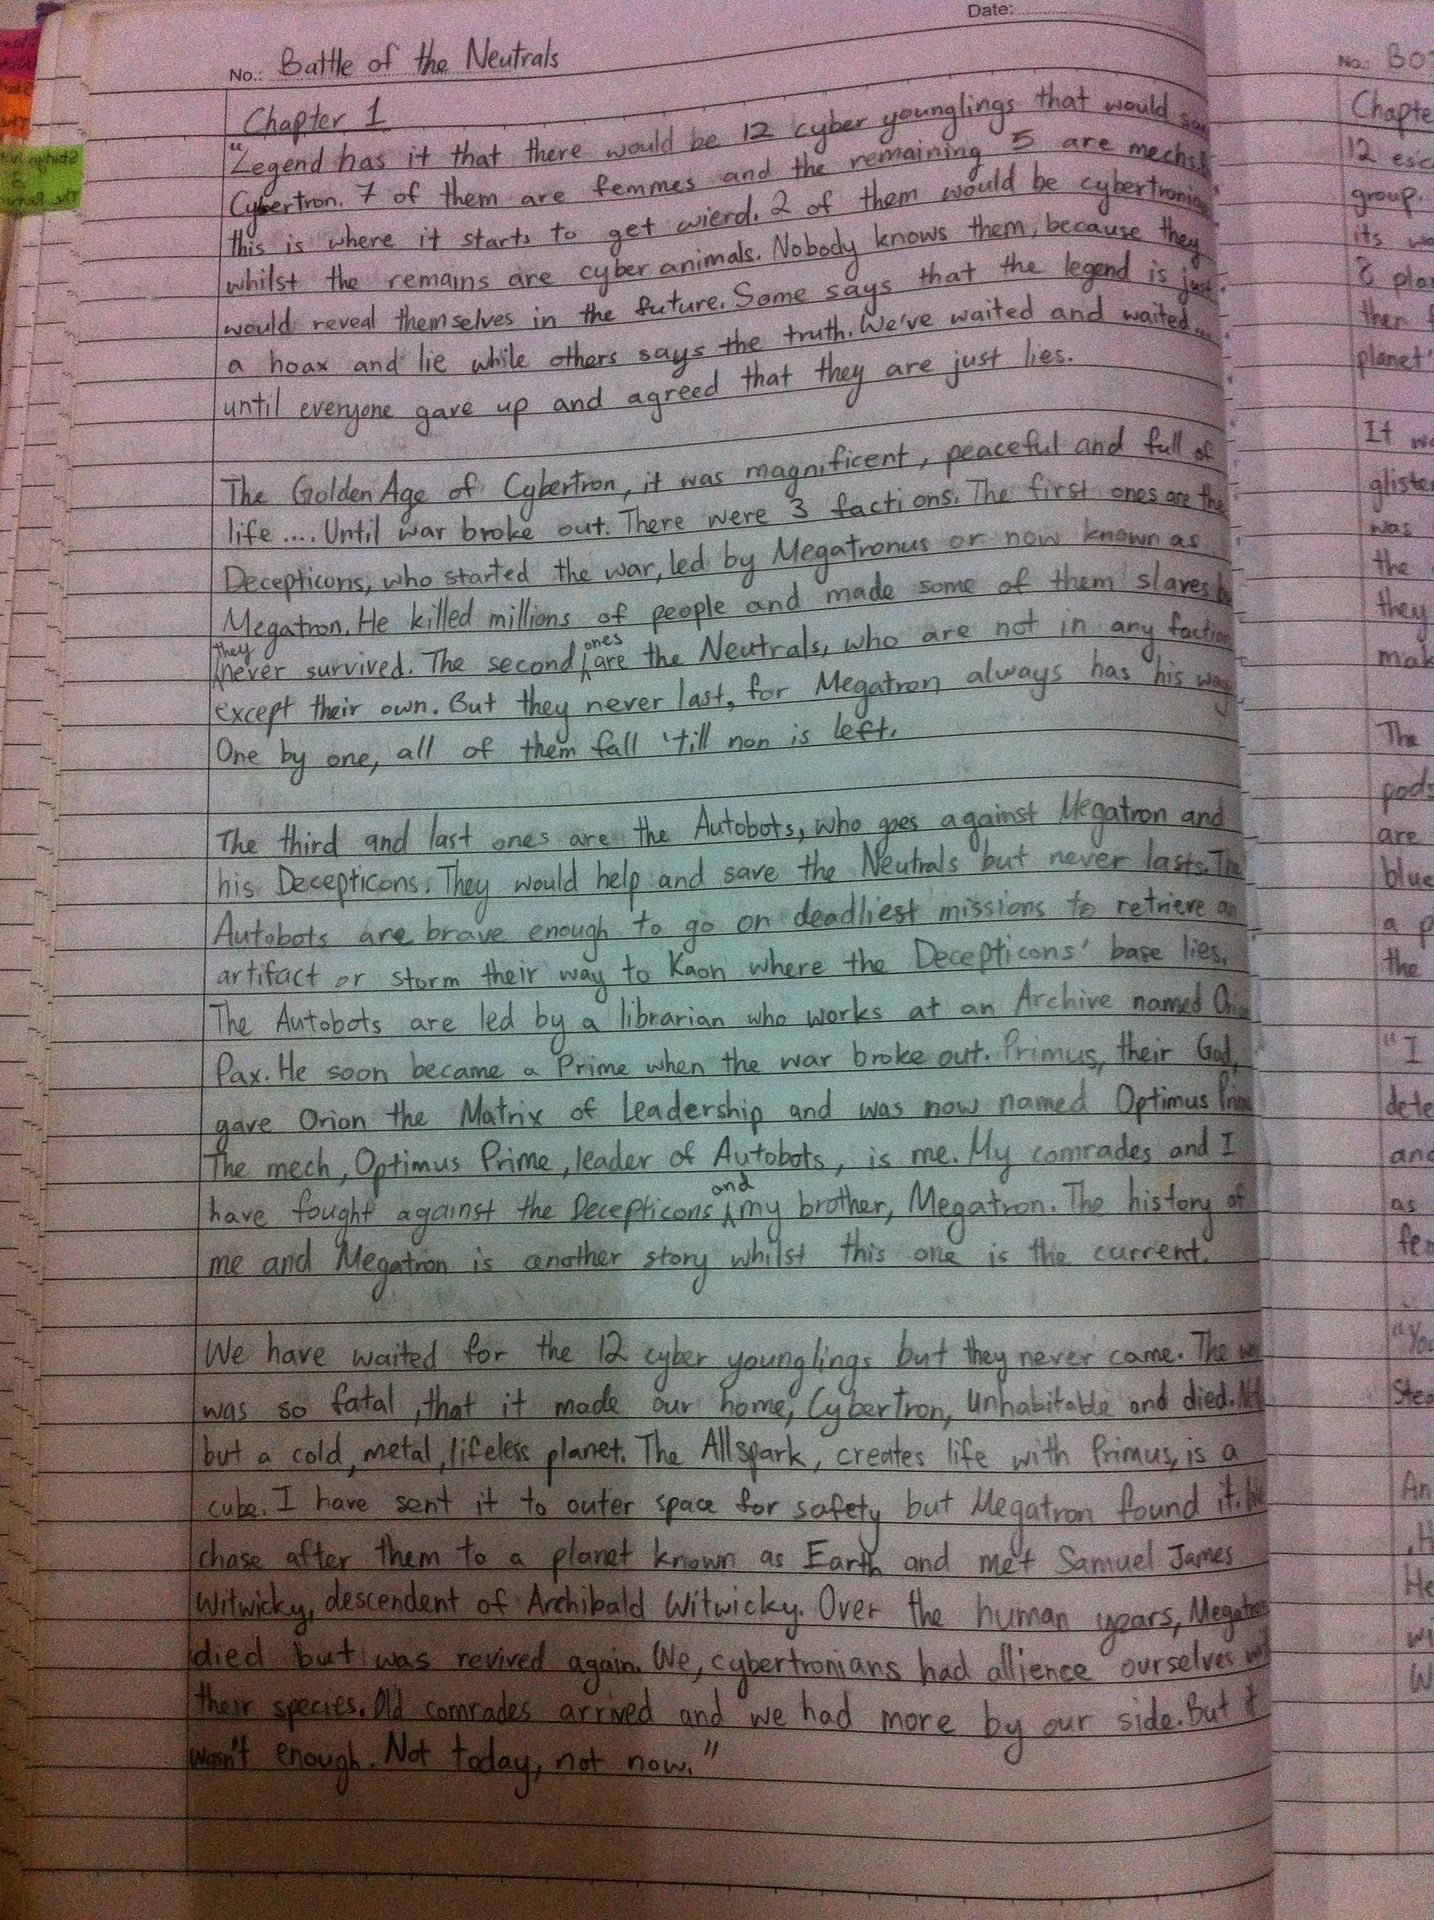 Date:
No.: Battle of the Neutrals
Chapter 1
"Legend has it that there would be 12 cyber younglings that would
Cybertron. 7 of them are femmes and the remaining 5 are mechs.
this is where it starts to get wierd. 2 of them would be cybertronian
whilst the remains are cyber animals. Nobody knows them, because they
would reveal themselves in the future. Some says that the legend is just
a hoax and lie while others says the truth. We've waited and waited...
until everyone gave up and agreed that they are just lies.
The Golden Age of Cybertron, it was magnificent, peaceful and full of
life .... Until war broke out. There were 3 factions. The first ones are the
Decepticons, who started the war, led by Megatronus or now known as
Megatron. He killed millions of people and made some of them slaves
they never survived. The second ones are the Neutrals, who are not in any faction
except their own. But they never last, for Megatron always has his way
One by one, all of them fall 'till non is left.
The third and last ones are the Autobots, who goes against Megatron and
his Decepticons. They would help and save the Neutrals but never lasts. The
Autobots are brave enough to go on deadliest missions to retrieve an
artifact or storm their way to Kaon where the Decepticons' base lies.
The Autobots are led by a librarian who works at an Archive named Orion
Pax. He soon became a Prime when the war broke out. Primus, their God,
gave Orion the Matrix of Leadership and was now named Optimus Prime
The mech, Optimus Prime, leader of Autobots, is me. My comrades and I
have fought against the Decepticons and my brother, Megatron. The history of
me and Megatron is another story whilst this one is the current.
We have waited for the 12 cyber younglings but they never came. The war
was so fatal, that it made our home, Cybertron, unhabitable and died.
but a cold, metal, lifeless planet. The Allspark, creates life with Primus, is a
cube. I have sent it to outer space for safety but Megatron found it.
chase after them to a planet known as Earth and met Samuel James
Witwicky, descendent of Archibald Witwicky. Over the human years, Megatron
died but was revived again. We, cybertronians had allience ourselves
their species. Old comrades arrived and we had more by our side. But it
wasn't enough. Not today, not now."
No.:
12
group.
8
then
planet
It
was
the
they
The
pods
are
blue
a
the
"I
and
as
An
He